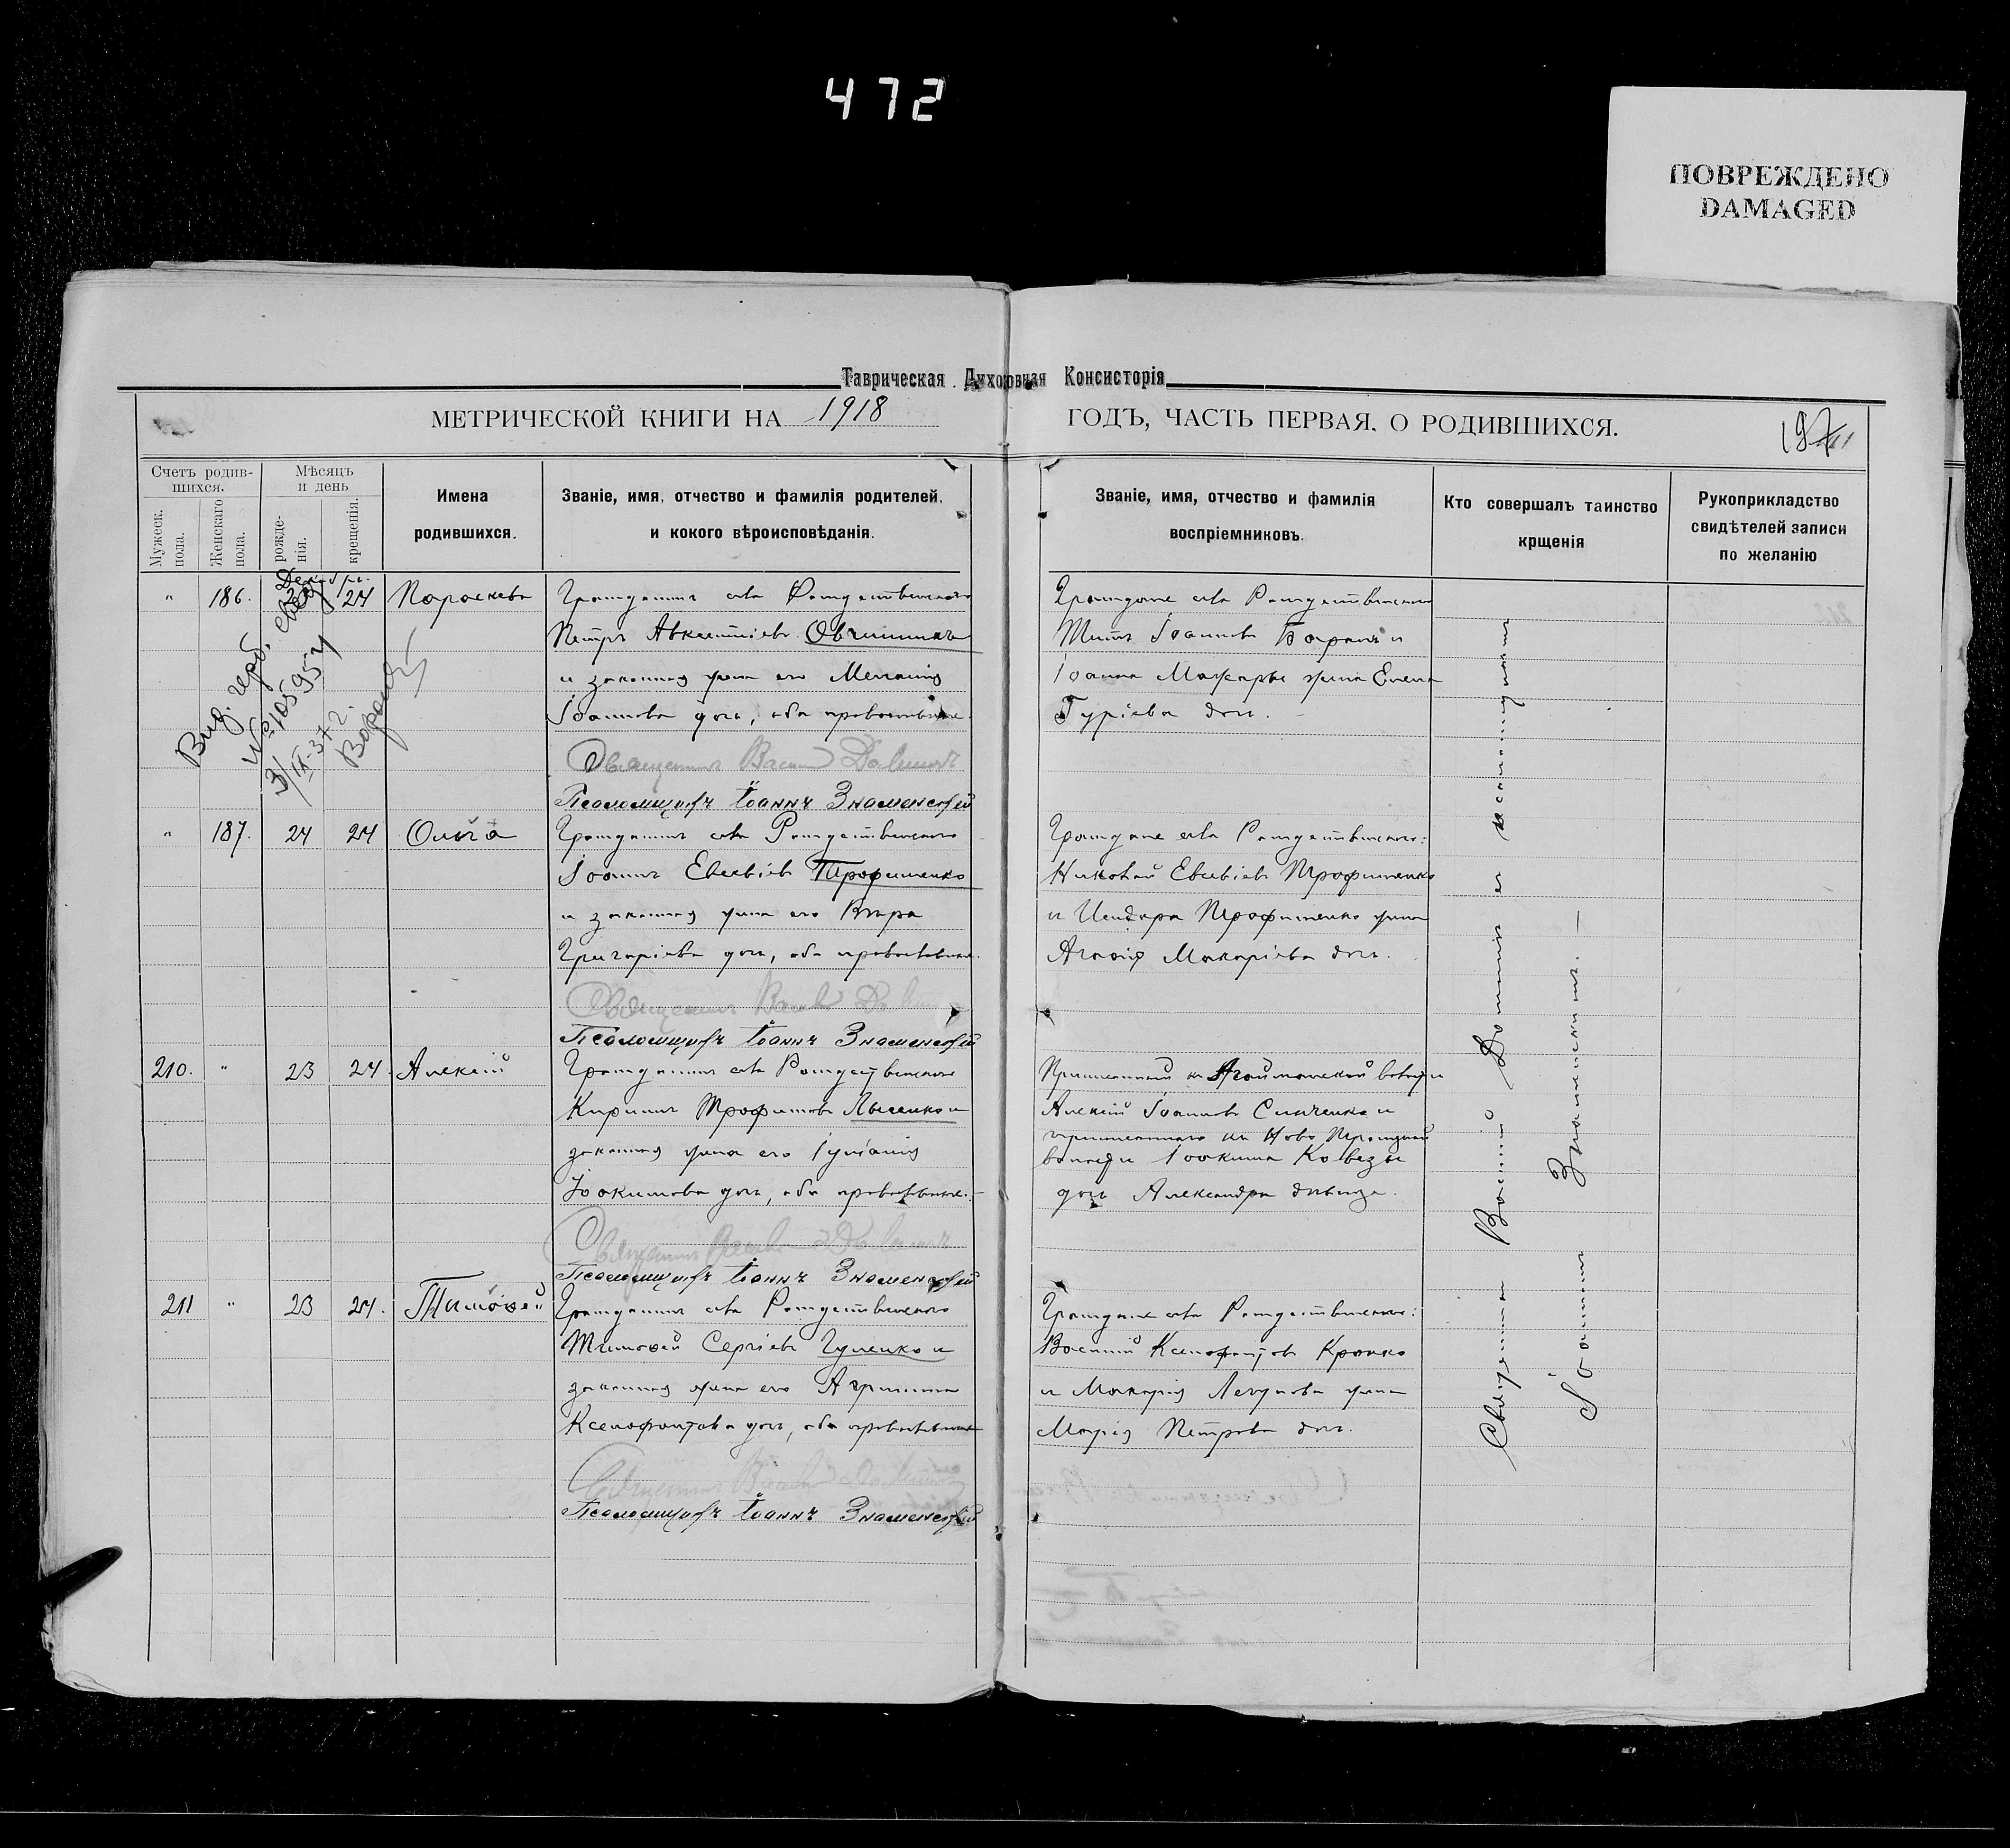 472
ПОВРЕЖДЕНО
DAMAGED
Таврическая Духовная Консисторія
МЕТРИЧЕСКОЙ КНИГИ НА 1918 ГОДЪ, ЧАСТЬ ПЕРВАЯ. О РОДИВШИХСЯ.
197
Счетъ родив-
шихся.
Мужеск.
пола.
Женскаго
пола.
Мѣсяцъ
и день
рожде-
нія.
крещенія.
Имена
родившихся.
Званіе, имя, отчество и фамилія родителей,
и кокого вѣроисповѣданія.
Званіе, имя, отчество и фамилія
воспріемниковъ.
Кто совершалъ таинство
крщенія
Рукоприкладство
свидѣтелей записи
по желанію
" 186. 24 Параскева
Гражданинъ села Рождественскаго
Петръ Авксентіевъ Овчинникъ
и законная жена его Меланія
Іоаннова дочь, оба православные.
Священникъ Василій
Псаломщикъ Іоаннъ Знаменскій
Граждане села Рождественскаго
Титъ Іоанновъ Баранъ и
Іоанна Мажары жена Елена
Гуріева дочь.
Вид. герб. свед
№ 105957
3/IX-37 г.
" 187. 24 24 Ольга
Гражданинъ села Рождественскаго
Іоаннъ Евсевіевъ Трофименко
и законная жена его Вѣра
Григоріева дочь, оба православные.
Священникъ Василій
Псаломщикъ Іоаннъ Знаменскій
Граждане села Рождественскаго:
Николай Евсевіевъ Трофименко
и Исидора Трофименко жена
Агафія Макаріева дочь.
210. " 23 24. Алексій
Гражданинъ села Рождественскаго
Кириллъ Трофимовъ Лысенко и
законная жена его Іуліанія
Іоакимова дочь, оба православные.
Священникъ Василій
Псаломщикъ Іоаннъ Знаменскій
Приписанный къ Агайманской волости
Алексій Іоанновъ Синченко и
приписаннаго къ Ново Троицкой
волости Іоакима Ковезы
дочь Александра дѣвица.
211 " 23 24. Тимоѳей
Гражданинъ села Рождественскаго
Тимоѳей Сергіевъ Гуленко и
законная жена его Агриппина
Ксенофонтова дочь, оба православные
Священникъ Василій
Псаломщикъ Іоаннъ Знаменскій
Граждане села Рождественскаго:
Василій Ксенофонтовъ Кропко
и Макарія Легунова жена
Марія Петрова дочь.
Священникъ Василій и псаломщикъ
Іоаннъ Знаменскій. —